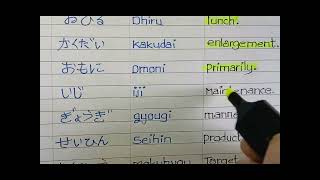 おひる Ohiru lunch.
かくだい kakudai enlargement.
おもに Omoni Primarily.
いじ iji Maintenance.
ぎょうぎ gyougi mann
せいひん Seihin product
Target